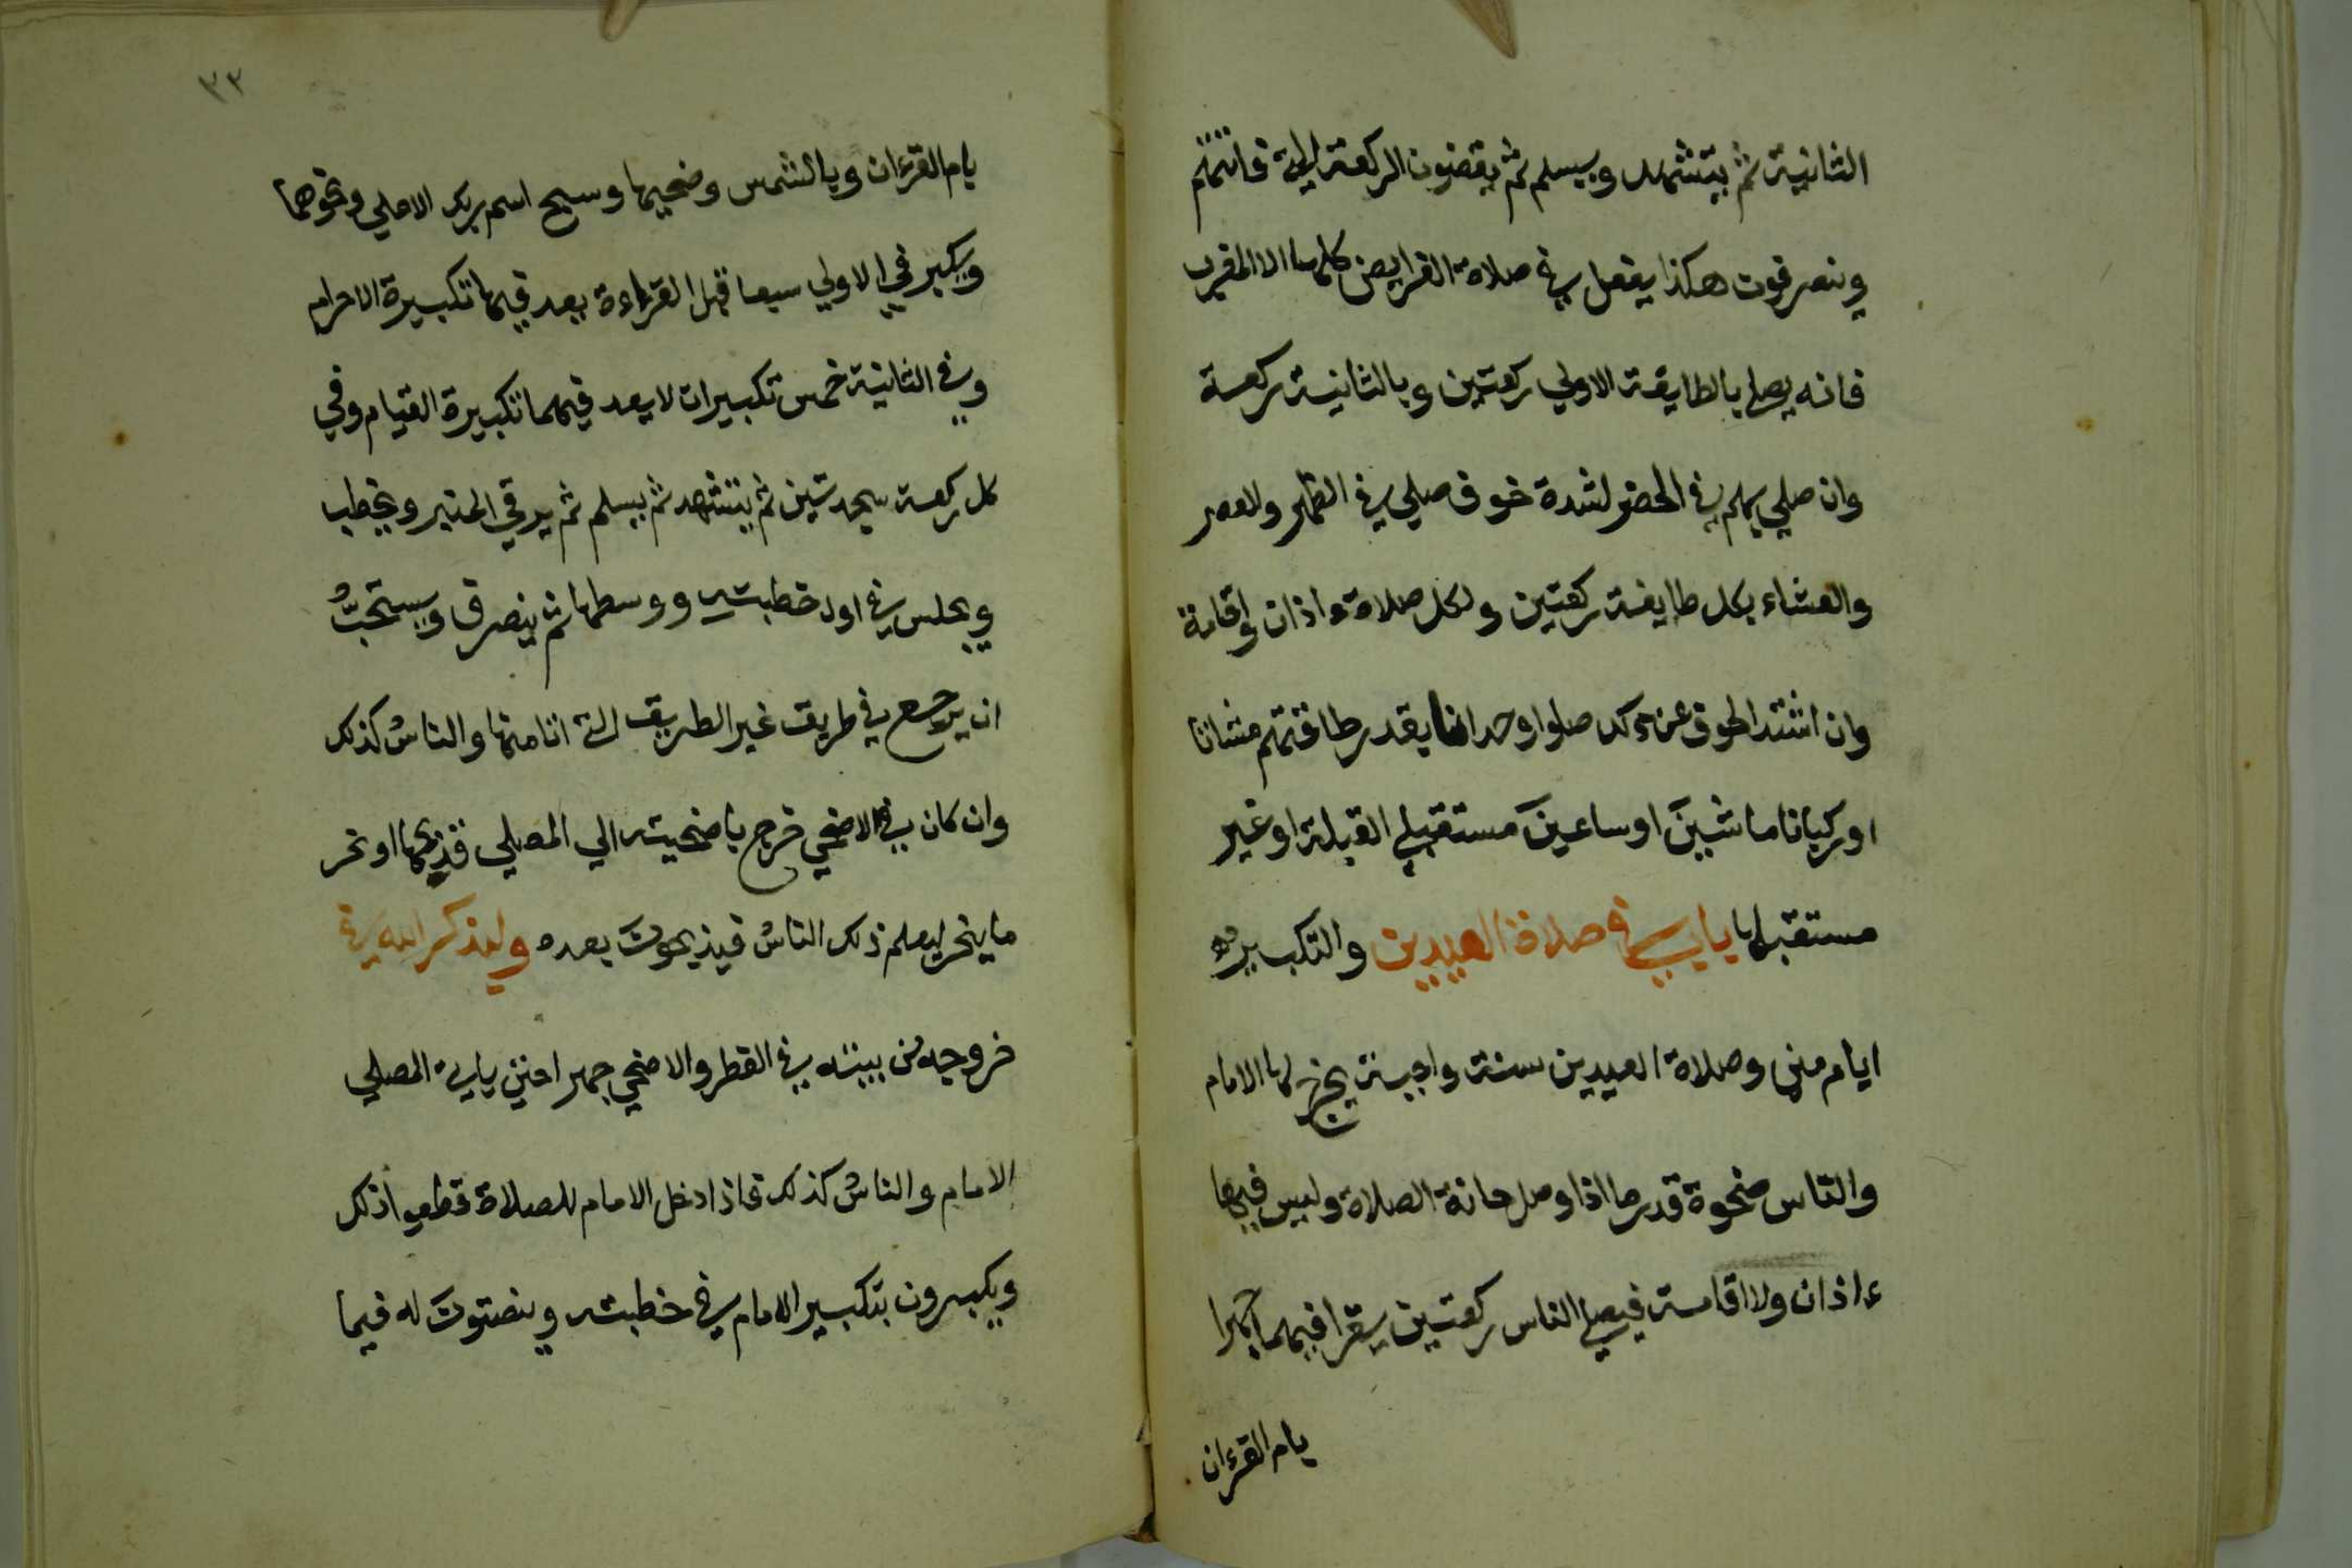 الثانية ثم يتشهد ويسلم ثم يقضون الركعة التي فاتتهم
وينصرفون هكذا يفعل في صلاة الفرايض كلها الا المغرب
فانه يصلي بالطايفة الاولي ركعتين وبالثانية ركعة
وان صلي بهم في الحضر لشدة خوف صلي في الظهر والعصر
والعشاء بكل طايفة ركعتين ولكل صلاة ءاذان واقامة
وان اشتد الخوف عن ذلك صلوا وحدانا بقدر طاقتهم مشاتا
او ركبانا ماشين او ساعين مستقبلي القبلة او غير
مستقبلها باب في صلاة العيدين والتكبير
ايام مني وصلاة العيدين سنة واجبة يخرج لها الامام
والناس ضحوة قدر ما اذا وصل حانة الصلاة وليس فيها
ءاذان ولا اقامة فيصلي الناس ركعتين يقرا فيهما جهرا
بام القرءان
٣٢
بام القرءان وبالشمس وضحيها وسبح اسم ربك الاعلي ونحوهما
ويكبر في الاولي سبعا قبل القراءة يعد فيها تكبيرة الاحرام
وفي الثانية خمس تكبيرات لا يعد فيهما تكبيرة القيام وفي
كل ركعة سجدتين ثم يتشهد ثم يسلم ثم يرقي المنبر ويخطب
ويجلس في اول خطبته ووسطها ثم ينصرف ويستحبُّ
ان يرجع في طريق غير الطريق التي اتا منها والناسُ كذلك
وان كان في الاضحي خرج باضحيته الي المصلي فذبحها او نحر
ما ينحر ليعلم ذلك الناسُ فيذبحونَ بعده وليذكر الله في
خروجه من بيته في الفطر والاضحي جهرا حتي ياتي المصلي
الامام والناسُ كذلك فاذا دخل الامام للصلاة قطعوا ذلك
ويكبرون بتكبير الامام في خطبته وينصتونَ له فيما